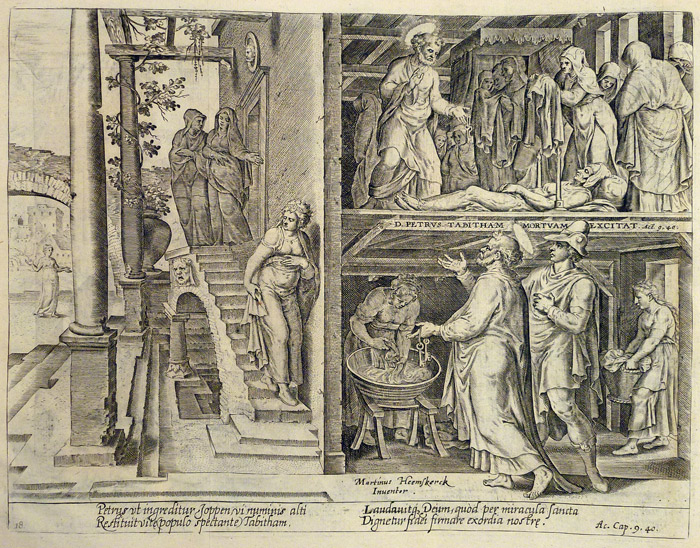 D. PETRVS TABITHAM MORTVAM EXCITAT. Act. 9. 40.
Martinus Heemskerck
Inventor.
Petrus ut ingreditur Joppen, vi numinis alti
Restituit vitę populo spectante Tabitham.
Laudavitq₃ Deum, quod per miracula sancta
Dignetur fidei firmare exordia nostrę.
Ac. Cap. 9. 40.
18